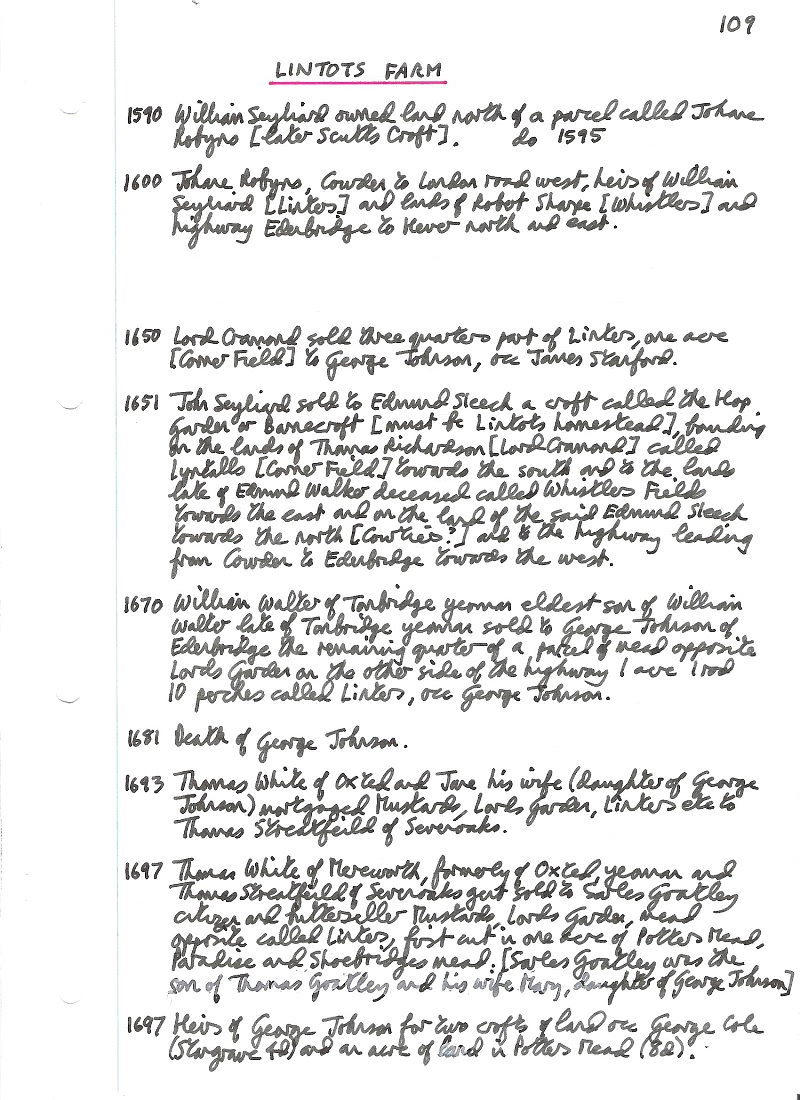 109
LINTOTS FARM
1590 William Seyliard owned land north of a parcel called Johane
Robyns [later Scutts Croft]. do 1595
1600 Johane Robyns, Cowder to London road west, heirs of William
Seyliard [Linters] and lands of Robot Sharpe [Whistlers] and
highway Edenbridge to Hever north and east.
1650 Lord Cramond sold three quarters part of Linters, one acre
[Corner Field] to George Johnson, occ James Stanford.
1651 John Seyliard sold to Edmund Sleech a croft called the Hop
Garden or Barnecroft [must be Lintots homestead], bounding
on the lands of Thomas Richardson [Lord Cramond] called
Lyntalls [Corner Field] towards the south and to the lands
late of Edmund Walker deceased called Whistlers Fields
towards the east and on the land of the said Edmund Sleech
towards the north [Cowties?] and to the highway leading
from Cowden to Edenbridge towards the west.
1670 William Walter of Tonbridge yeoman eldest son of William
Walter late of Tonbridge yeoman sold to George Johnson of
Edenbridge the remaining quarter of a parcel of mead opposite
Lords Garden on the other side of the highway 1 acre 1 rod
10 perches called Linters, occ George Johnson.
1681 Death of George Johnson.
1693 Thomas White of Oxted and Jane his wife (daughter of George
Johnson) mortgaged Mustards, Lords Garden, Linters etc to
Thomas Streatfeild of Sevenoaks.
1697 Thomas White of Mereworth, formerly of Oxted, yeoman and
Thomas Streatfeild of Sevenoaks gent sold to Sarles Goatley
citizen and butterseller Mustards, Lords Garden, mead
opposite called Linters, first cut in one acre of Potters Mead,
Paradise and Shoebridges mead. [Sarles Goatley was the
son of Thomas Goatley and his wife Mary, daughter of George Johnson]
1697 Heirs of George Johnson for two crofts of land occ George Cole
(Stargrave 4d) and an acre of land in Potters Mead (8d).